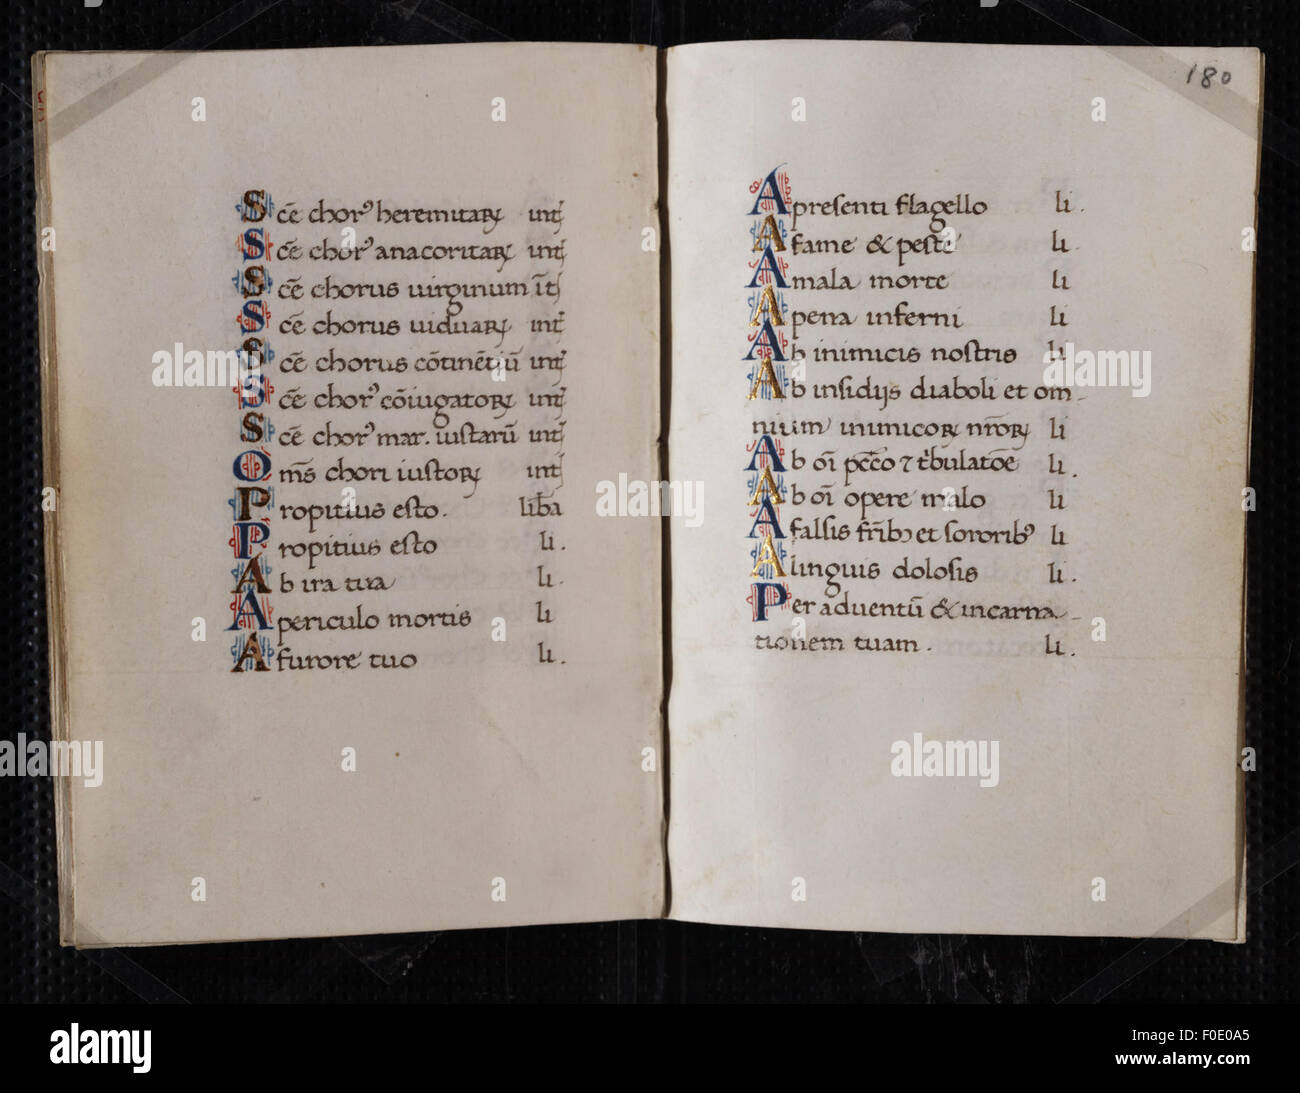 Sc̄e chor⁹ heremitaꝝ int̄
Sc̄e chor⁹ anacoritaꝝ int̄
Sc̄e chorus uirginum īt
Sc̄e chorus uiduaꝝ int̄
Sc̄e chorus cōtinētiū int̄
Sc̄e chor⁹ cōiugatoꝝ int̄
Sc̄e chor⁹ mar. iustarū int̄
Om̄s chori iustoꝝ int̄
Propitius esto. lib̄a
Propitius esto li.
Ab ira tua li.
A periculo mortis li
A furore tuo li.
180
A presenti flagello li.
A fame & peste li.
A mala morte li
A pena inferni li
Ab inimicis nostris li
Ab insidijs diaboli et om-
nium inimicoꝝ nr̄oꝝ li
Ab oī pcc̄o ⁊ t'bulatōe li.
Ab oī opere malo li
A falsis fr̄ib⁹ et sororib⁹ li
A linguis dolosis li.
Per aduentū & incarna-
tionem tuam. li.
alamy
alamy
Image ID: F0E0A5
www.alamy.com